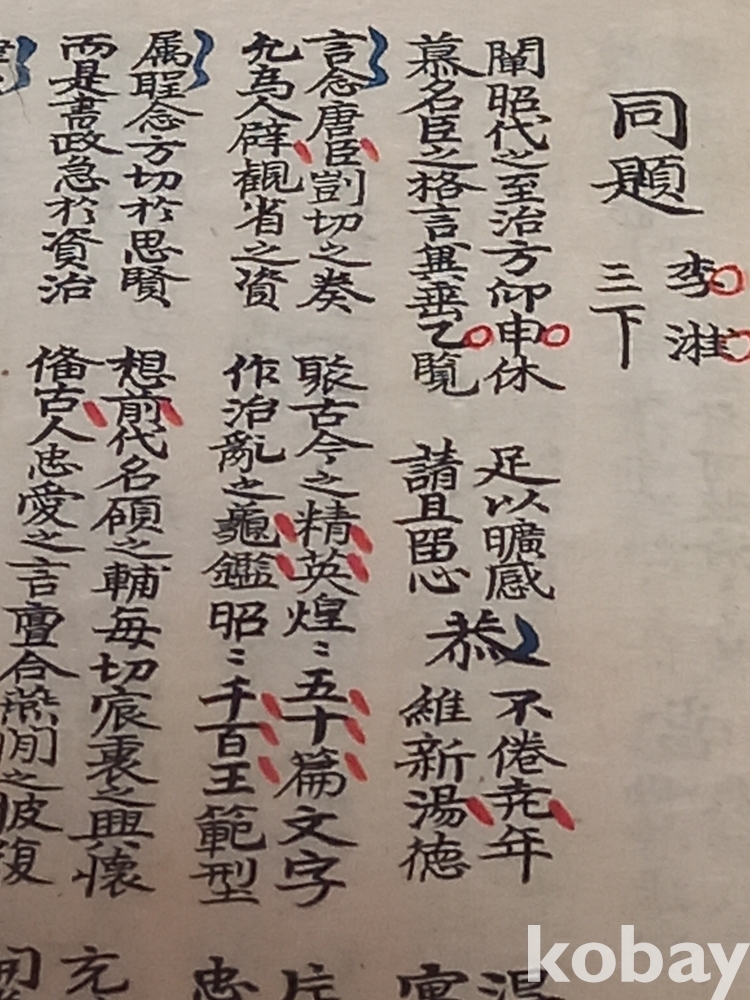 同題
李
三下
闡昭代之至治方仰申休 足以曠感
慕名臣之格言冀垂乙覧 請且留心
恭
不倦尭年
維新湯德 寓
言念唐臣剴切之奏 聚古今之精英煌〻五十篇文字 片
允為人辟觀省之資 作治亂之龜鑑昭〻千百王範型 忠
属聖念方切於思賢 想前代名碩之輔每切宸衷之興懷 充
而是書政急於資治 備古人忠愛之言亶合燕閒之披復
kobay